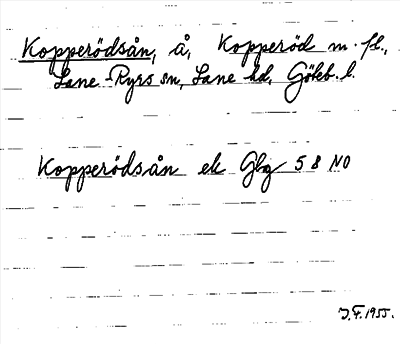 Kopperödsån, å, Kopperöd m. fl.,
Lane-Ryrs sn, Lane hd, Göteb. l.
Kopperödsån ek Gbg 5 8 NO
J.F. 1955.